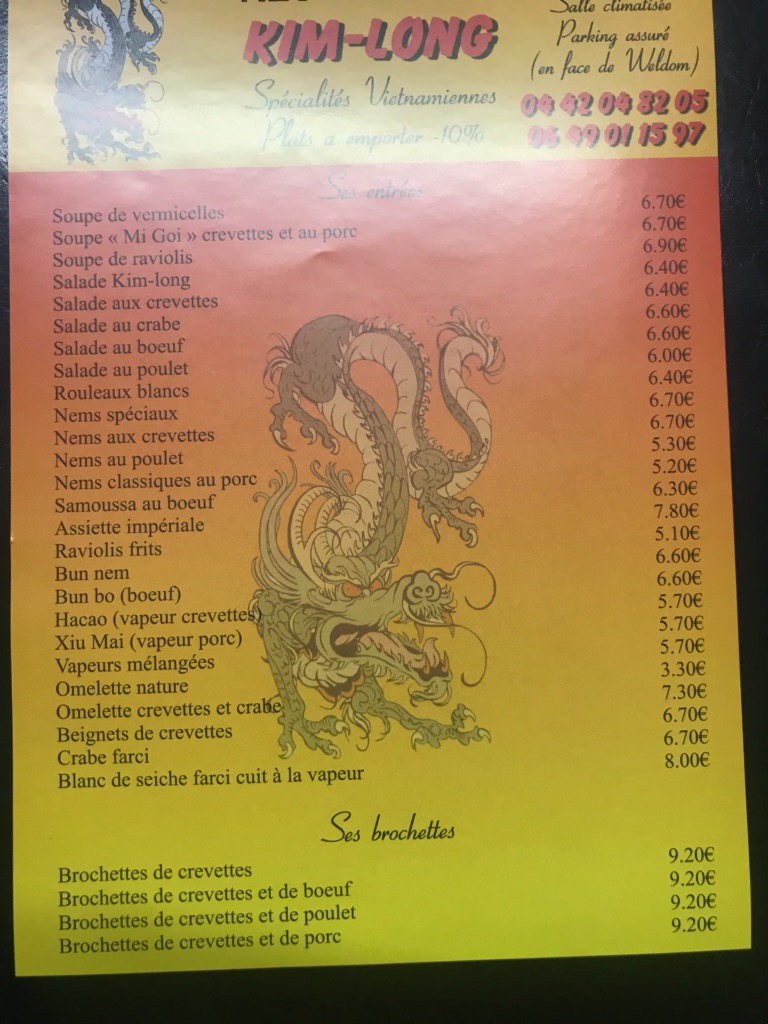 KIM-LONG
Spécialités Vietnamiennes
Plats a emporter -10%
Salle climatisée
Parking assuré
(en face de Weldom)
04 42 04 82 05
06 49 01 15 97
Ses entrées
Soupe de vermicelles 6.70€
Soupe « Mi Goi » crevettes et au porc 6.70€
Soupe de raviolis 6.90€
Salade Kim-long 6.40€
Salade aux crevettes 6.40€
Salade au crabe 6.60€
Salade au boeuf 6.60€
Salade au poulet 6.00€
Rouleaux blancs 6.40€
Nems spéciaux 6.70€
Nems aux crevettes 6.70€
Nems au poulet 5.30€
Nems classiques au porc 5.20€
Samoussa au boeuf 6.30€
Assiette impériale 7.80€
Raviolis frits 5.10€
Bun nem 6.60€
Bun bo (boeuf) 6.60€
Hacao (vapeur crevettes) 5.70€
Xiu Mai (vapeur porc) 5.70€
Vapeurs mélangées 5.70€
Omelette nature 3.30€
Omelette crevettes et crabe 7.30€
Beignets de crevettes 6.70€
Crabe farci 6.70€
Blanc de seiche farci cuit à la vapeur 8.00€
Ses brochettes
Brochettes de crevettes 9.20€
Brochettes de crevettes et de boeuf 9.20€
Brochettes de crevettes et de poulet 9.20€
Brochettes de crevettes et de porc 9.20€